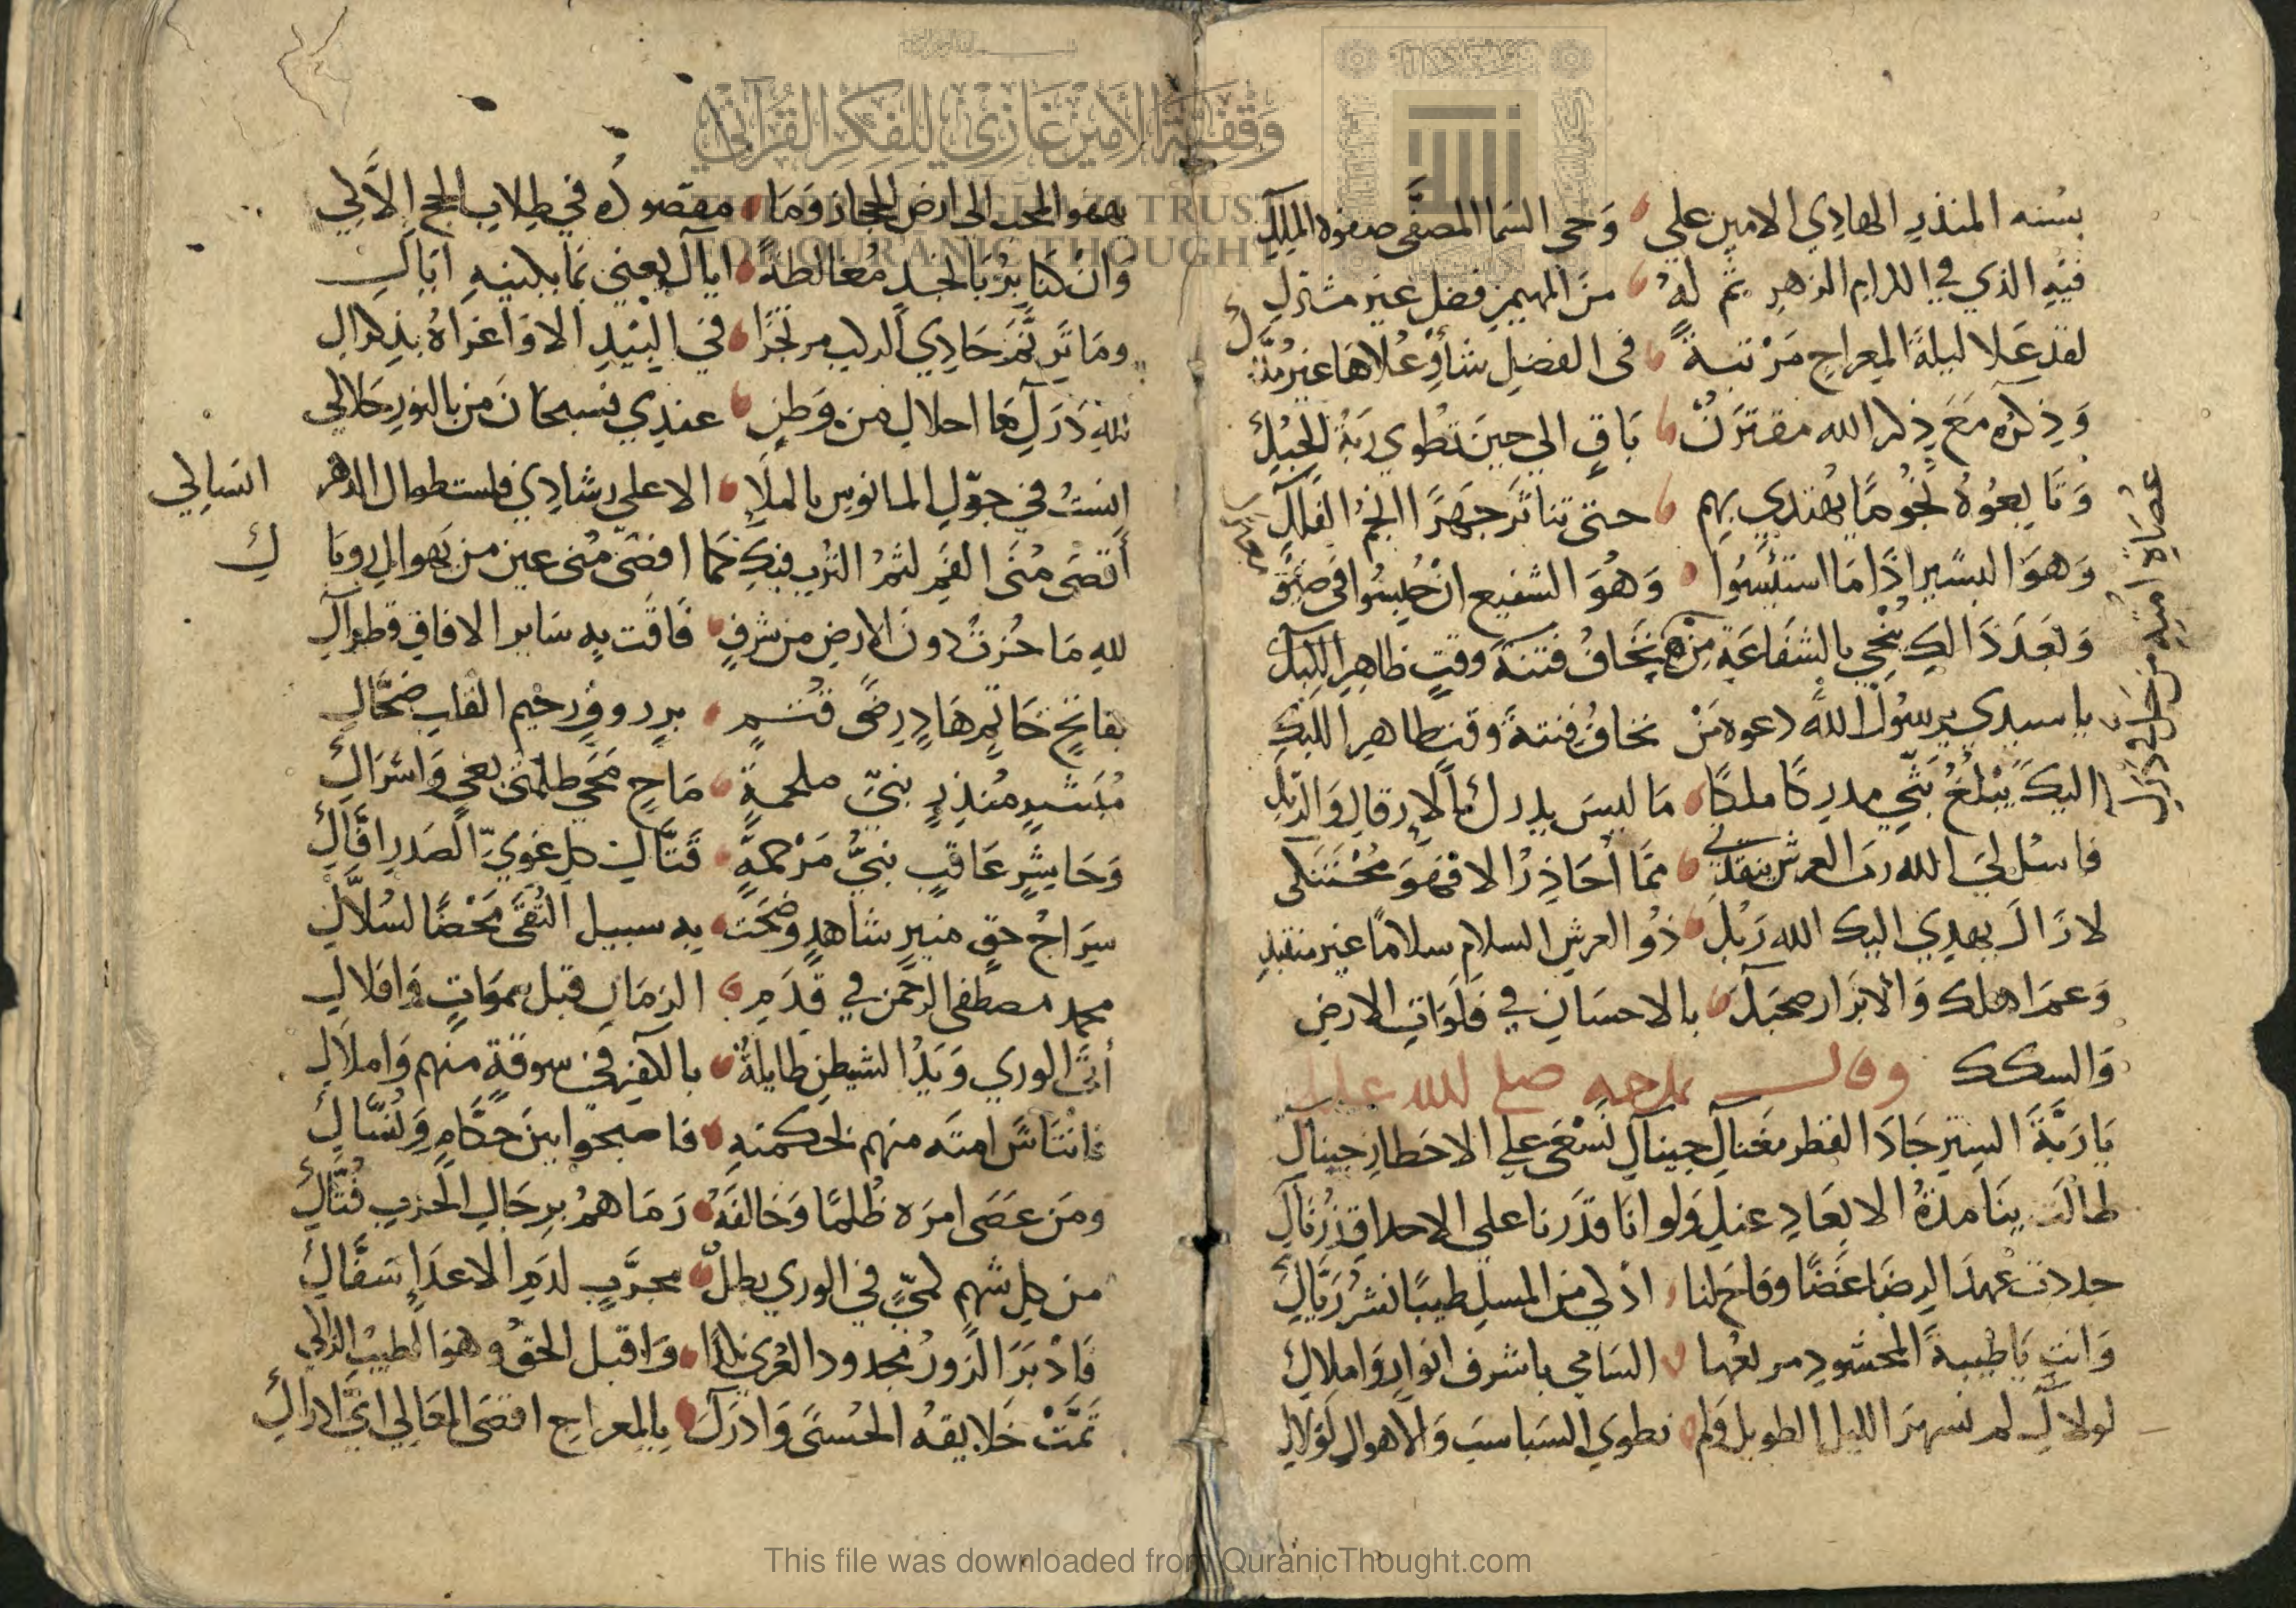 بسنه المنذر الهادي الامين علي وحي السما المصفى صفوة الملك
فيه الذي في الكرام الزهر ثم له من المهيمن فضل غير مشترك
لقد علا ليلة المعراج مرتبة في الفضل شأو علاها غير
وذكره مع ذكر الله مقترن باق الي حين تطوي الحبك
وتابعوه نجوما يهتدي بهم حتى تناثر جهرا انجم الفلك
وهو البشير اذا ما استيئسوا وهو الشفيع ان حبسوا في ضيق
وبعد ذالك ينجي بالشفاعة من
عصاة امته من
يا سيدي يرسول الله دعوة من يخاف فتنة وقت ظاهر اللبك
اليك يبلغ بثي مدركا ملكا ما ليس يدرك بالارقال والرتك
فاسئل لي الله رب العرش ينقذني مما احاذر الا فهو محتنكى
لا زال يهدي اليك الله ربك ذو العرش السلام سلاما غير
وعم اهلك والابرار صحبك بالاحسان في فلوات الارض
والسكك وقال يمدحه صلى الله عليه
يا ربة الستر جاد القطر مغناك حيناك نسعى علي الاخطار حيناك
طالت بنا مدة الابعاد عنك ولو انا قدرنا على الاحداق زرناك
جددت عهد الرضا غضا وفاح لنا اذكي من المسك طيبا نشر رياك
وانت يا طيبة المحشود مربعها السامي باشرف انوار واملاك
لولاك لم نسهر الليل الطويل ولم نطوي السباسب والاهوال لولاك
يهفو المحب الى ارض الحجاز وما مقصوده في طلاب الحج الاك لي
وان كنا بربا نجد مغالطة اياك يعني بما يكنيه اياك
وما ترنم حادي الركب مرتجزا في البيد الا واغراه بذكراك
لله درك ما احلاك من وطن عندي فسبحان من بالنور حلاك لي
انست في حوك المانوس بالملا الاعلى رشادي فلست طوال الدهر انساك لي
أقصى منى الفم لثم الترب فيك كما اقصى منى عين من يهواك روياك
لله ما حزت دون الارض من شرف فاقت به ساير الافاق قطراك
بفاتح خاتم هاد رضى قثم بر روف رحيم القلب ضحاك
مبشر منذر نبي ملحمة ماح محي ظلمتى بغي واشراك
وحاشر عاقب نبي مرحمة قتال كل غوي الصدر افاك
سراج حق منير شاهد وضحت به سبيل التقى محضا لسلاك
محمد مصطفى الرحمن في قدم الزمان قبل سموات وافلاك
أتى الوري ويد الشيطن طايلة بالكفر في سوقة منهم واملاك
فانتاش امته منهم بحكمته فاصبحوا بين حكام ونساك
ومن عصى امره ظلما وخالفه رماهم برجال الحرب فتاك
من كل شهم كمي في الوري بطل مجرب لدم الاعداء سفاك
فادبر الزور مجدود العري واقبل الحق وهو الطيب الزاكي
تمت خلايقه الحسنى وادرك بالمعراج اقصى المعالي اي ادراك
وقفية الأمير غازي للفكر القرآني
FOR QURANIC THOUGHT
This file was downloaded from QuranicThought.com